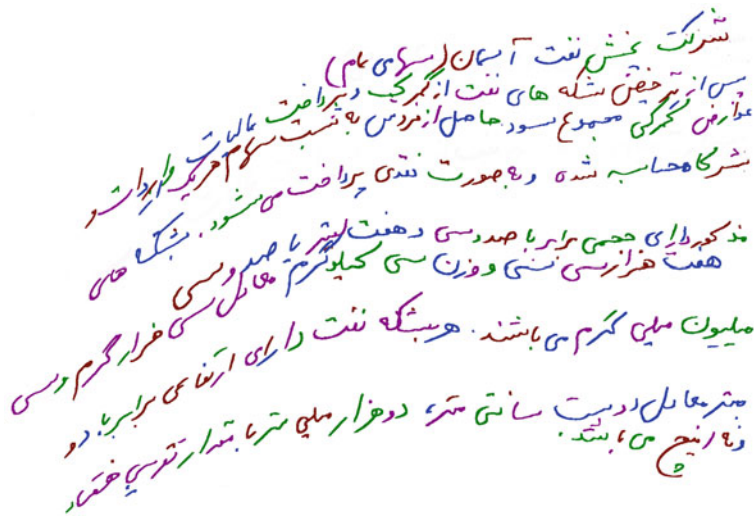 شرکت پخش نفت آسمان (سهامی عام)
پس از ترخیص بشکه های نفت از گمرک و پرداخت مالیات واردات و
عوارض گمرکی مجموع سود حاصل از فروش به نسبت سهام هر یک از
شرکا محاسبه شده و به صورت نقدی پرداخت می شود. بشکه های
مذکور دارای حجمی برابر با صد و سی و هفت لیتر یا صد و سی
هفت هزار سی سی و وزن سی کیلوگرم معادل سی هزار گرم و سی
میلیون میلی گرم می باشند. هر بشکه نفت دارای ارتفاعی برابر با دو
متر معادل دویست سانتی متر، دو هزار میلی متر با مقدار تقریبی هفتاد
و نه اینچ می باشد.